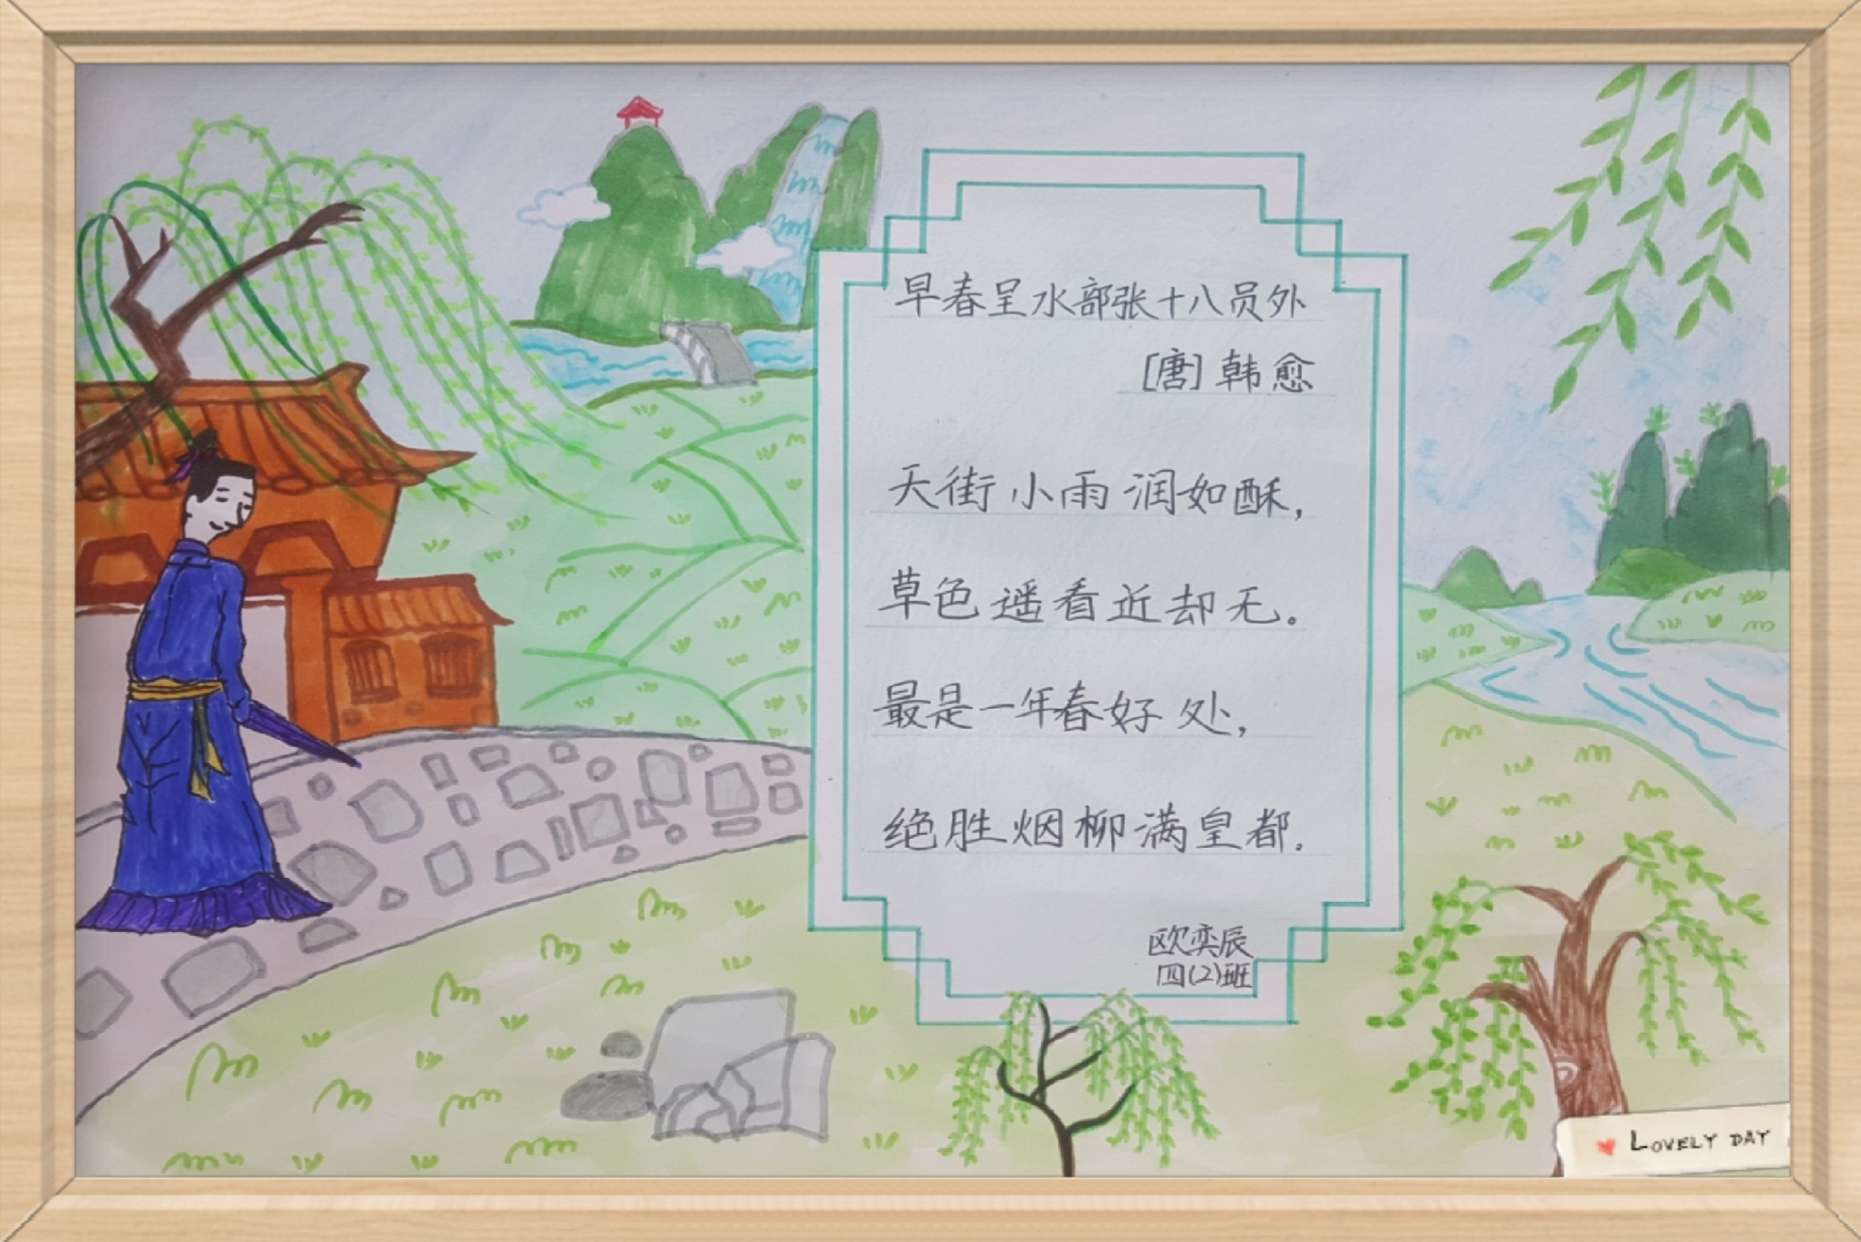 早春呈水部张十八员外
[唐] 韩愈
天街小雨润如酥，
草色遥看近却无。
最是一年春好处，
绝胜烟柳满皇都.
欧奕辰
四(2)班
LOVELY DAY